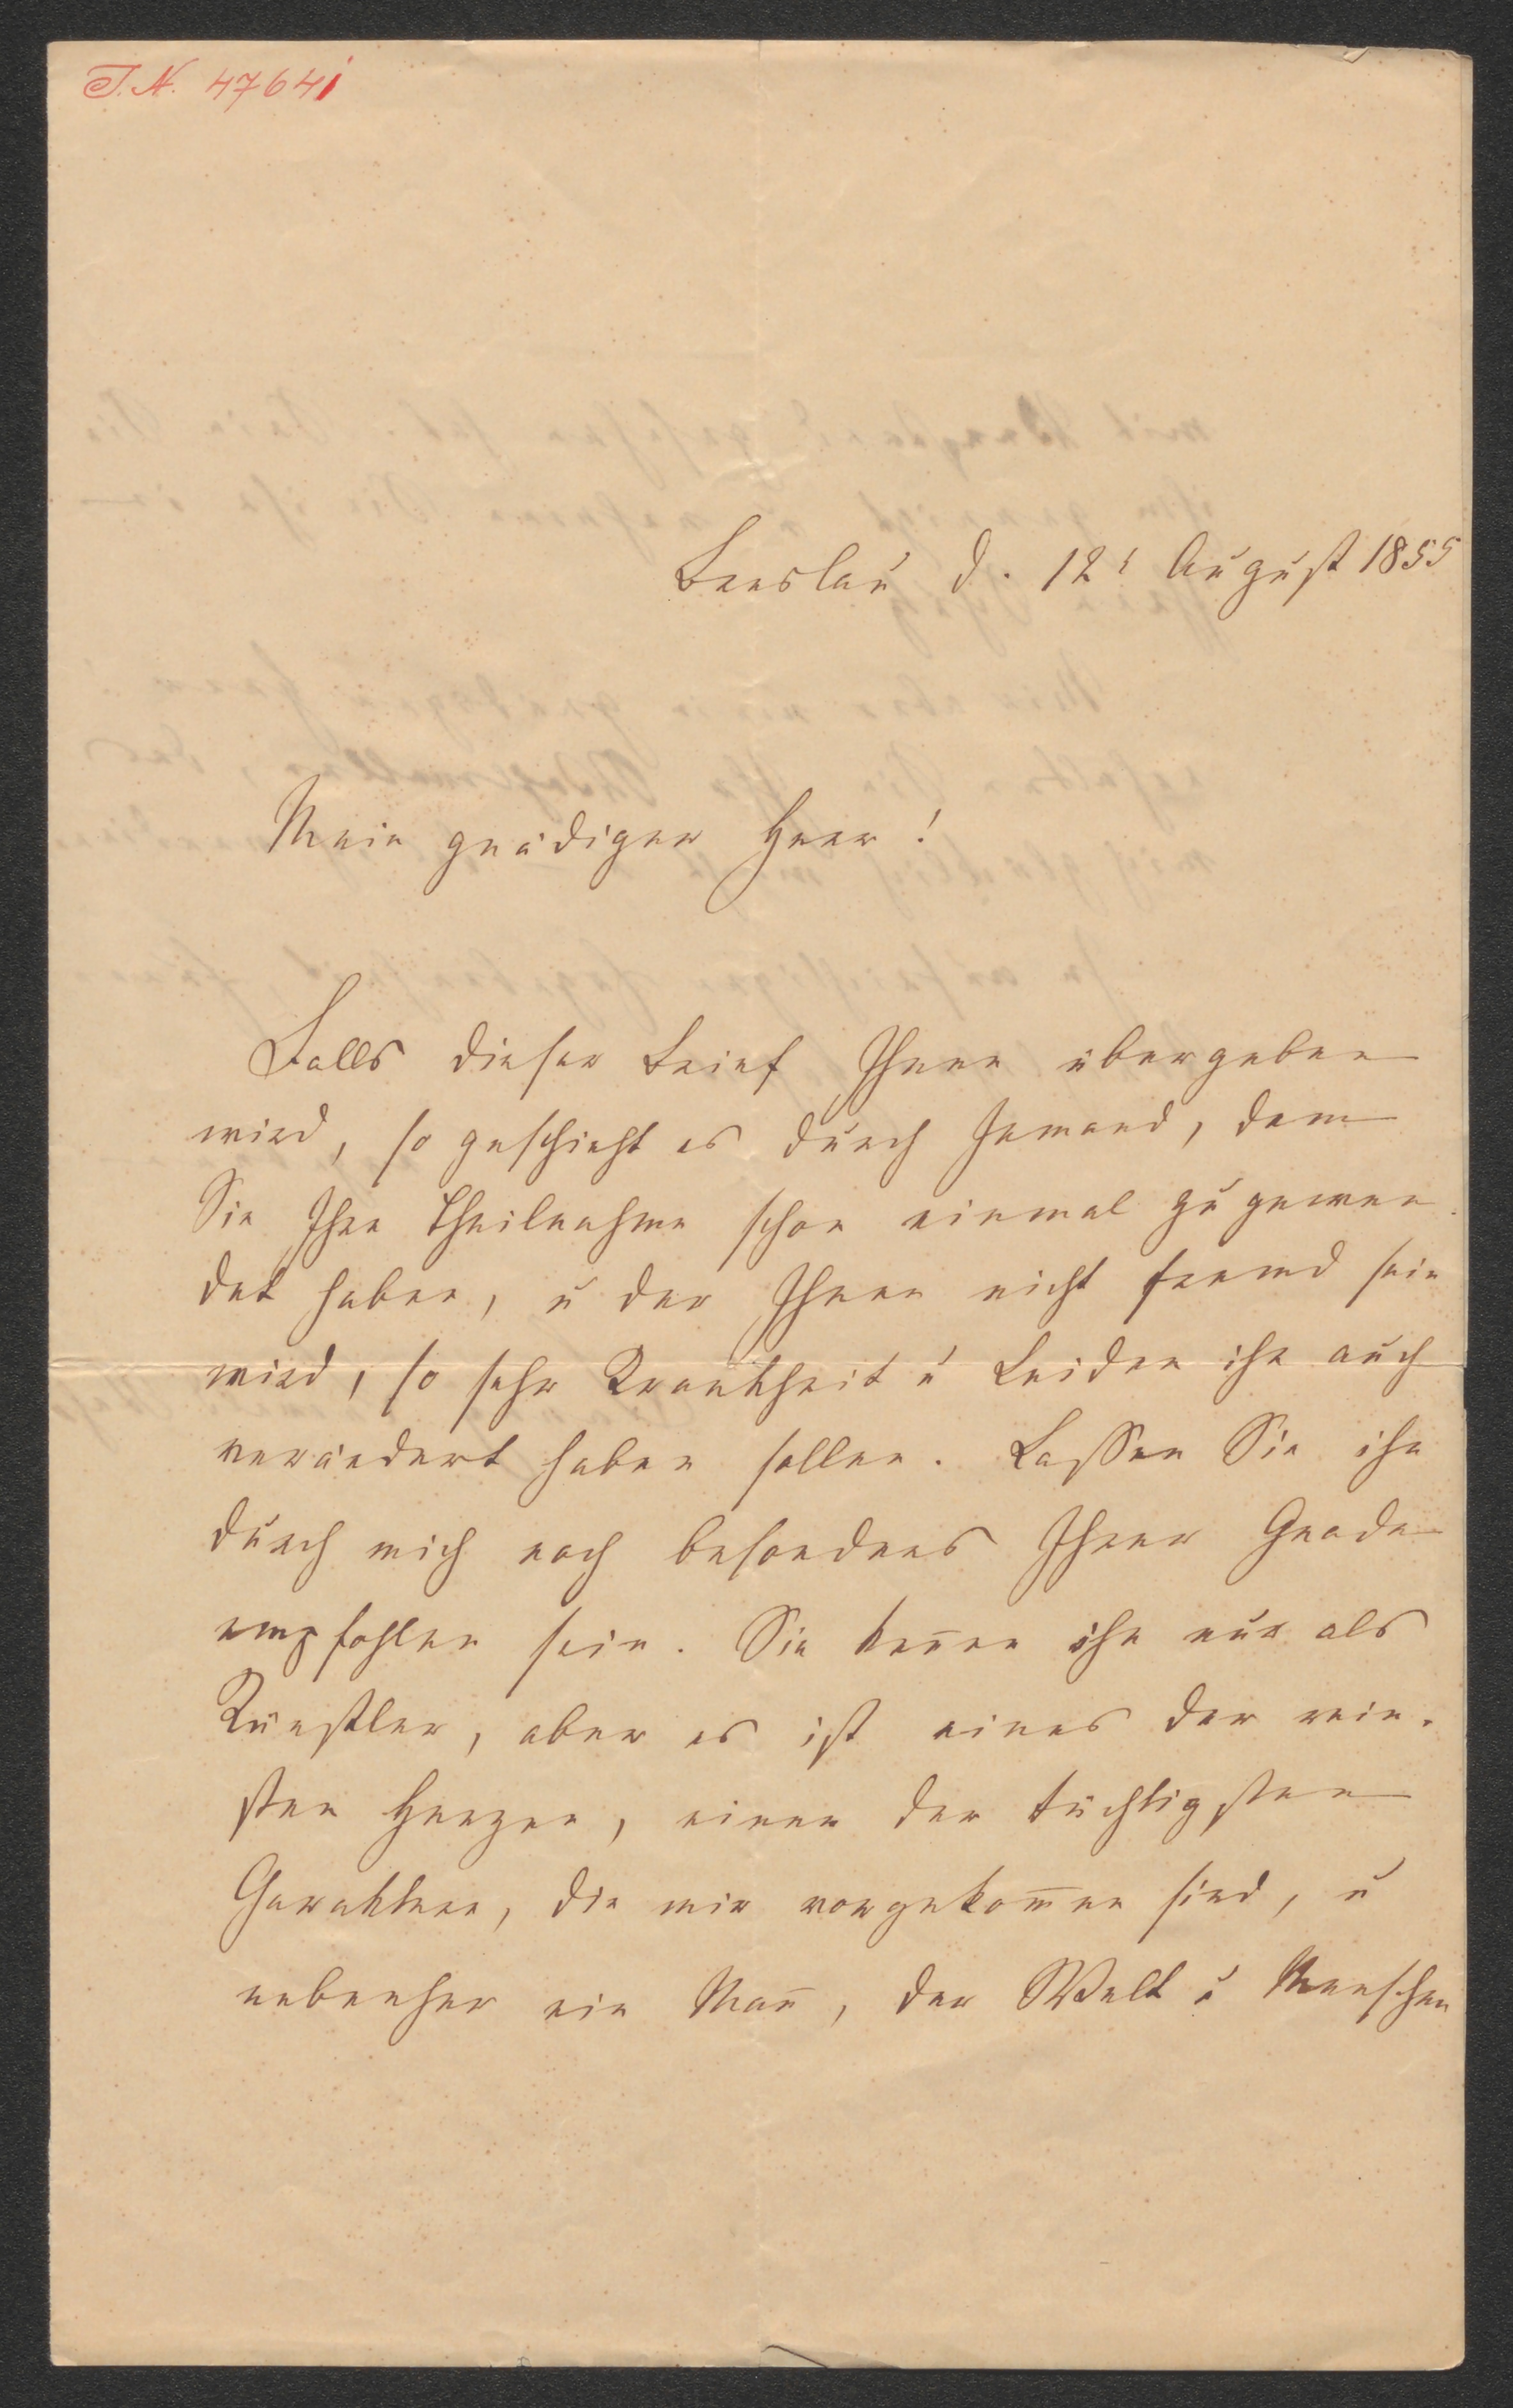 I.N. 47641
Breslau d. 12t August 1855
Mein gnädiger Herr!
Falls dieser Brief Ihnen übergeben
wird, so geschieht es durch Jemand, dem
Sie Ihre Theilnahme schon einmal zugewen-
det haben, u der Ihnen nicht fremd sein
wird, so sehr Krankheit u Leiden ihn auch
verändert haben sollen. Lassen Sie ihn
durch mich noch besonders Ihrer Gnade
empfohlen sein. Sie kennen ihn nur als
Künstler, aber es ist eines der rein-
sten Herzen, einer der tüchtigsten
Charaktere, die mir vorgekom̅en sind, u
nebenher ein Man̅, der Welt u Menschen